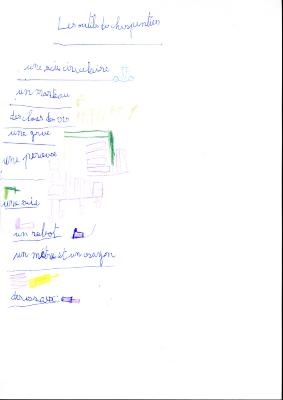 Les outils du charpentier
une scie circulaire
un marteau
des clous des vis
une grue
une perceuse
une scie
un rabot
un mètre et un crayon
des ciseaux